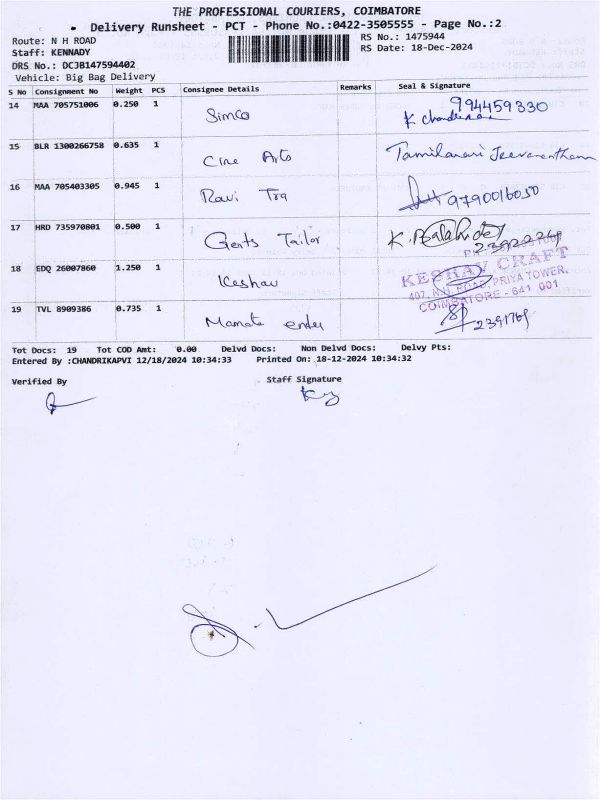 THE PROFESSIONAL COURIERS, COIMBATORE
Delivery Runsheet - PCT - Phone No.:0422-3505555 - Page No.:2
Route: N H ROAD
RS No.: 1475944
Staff: KENNADY
RS Date: 18-Dec-2024
DRS No.: DCJB147594402
Vehicle: Big Bag Delivery
S No Consignment No Weight PCS Consignee Details Remarks Seal & Signature
14 MAA 705751006 0.250 1 Simco 994459330
15 BLR 1300266758 0.635 1 Cine Arts
16 MAA 705403305 0.945 1 Ravi Tra 9790016050
17 HRD 735970801 0.500 1 Gents Tailor
18 EDQ 26007860 1.250 1 Keshav
KESHAV CRAFT
407, N.H. ROAD, PRIYA TOWER,
COIMBATORE - 641 001
19 TVL 8909386 0.735 1 2391769
Tot Docs: 19 Tot COD Amt: 0.00 Delvd Docs: Non Delvd Docs: Delvy Pts:
Entered By :CHANDRIKAPVI 12/18/2024 10:34:33 Printed On: 18-12-2024 10:34:32
Verified By
Staff Signature